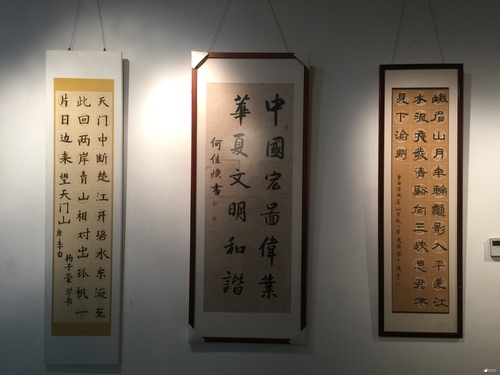 天门中断楚江开碧水东流至
此回两岸青山相对出孤帆一
片日边来 望天门山 唐李白
学书
中國宏圖偉業
華夏文明和諧
何佳焕書
峨眉山月半輪秋影入平羌江
水流夜發清谿向三峽思君不
見下渝州